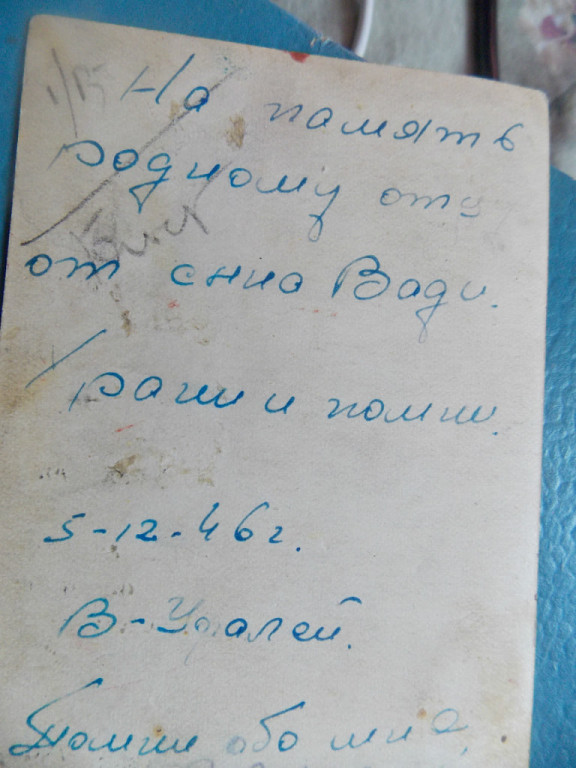 1/15 На память
родному отцу
от сына Вади.
Храни и помни.
5-12-46г.
В-Уфалей.
Помни обо мне,